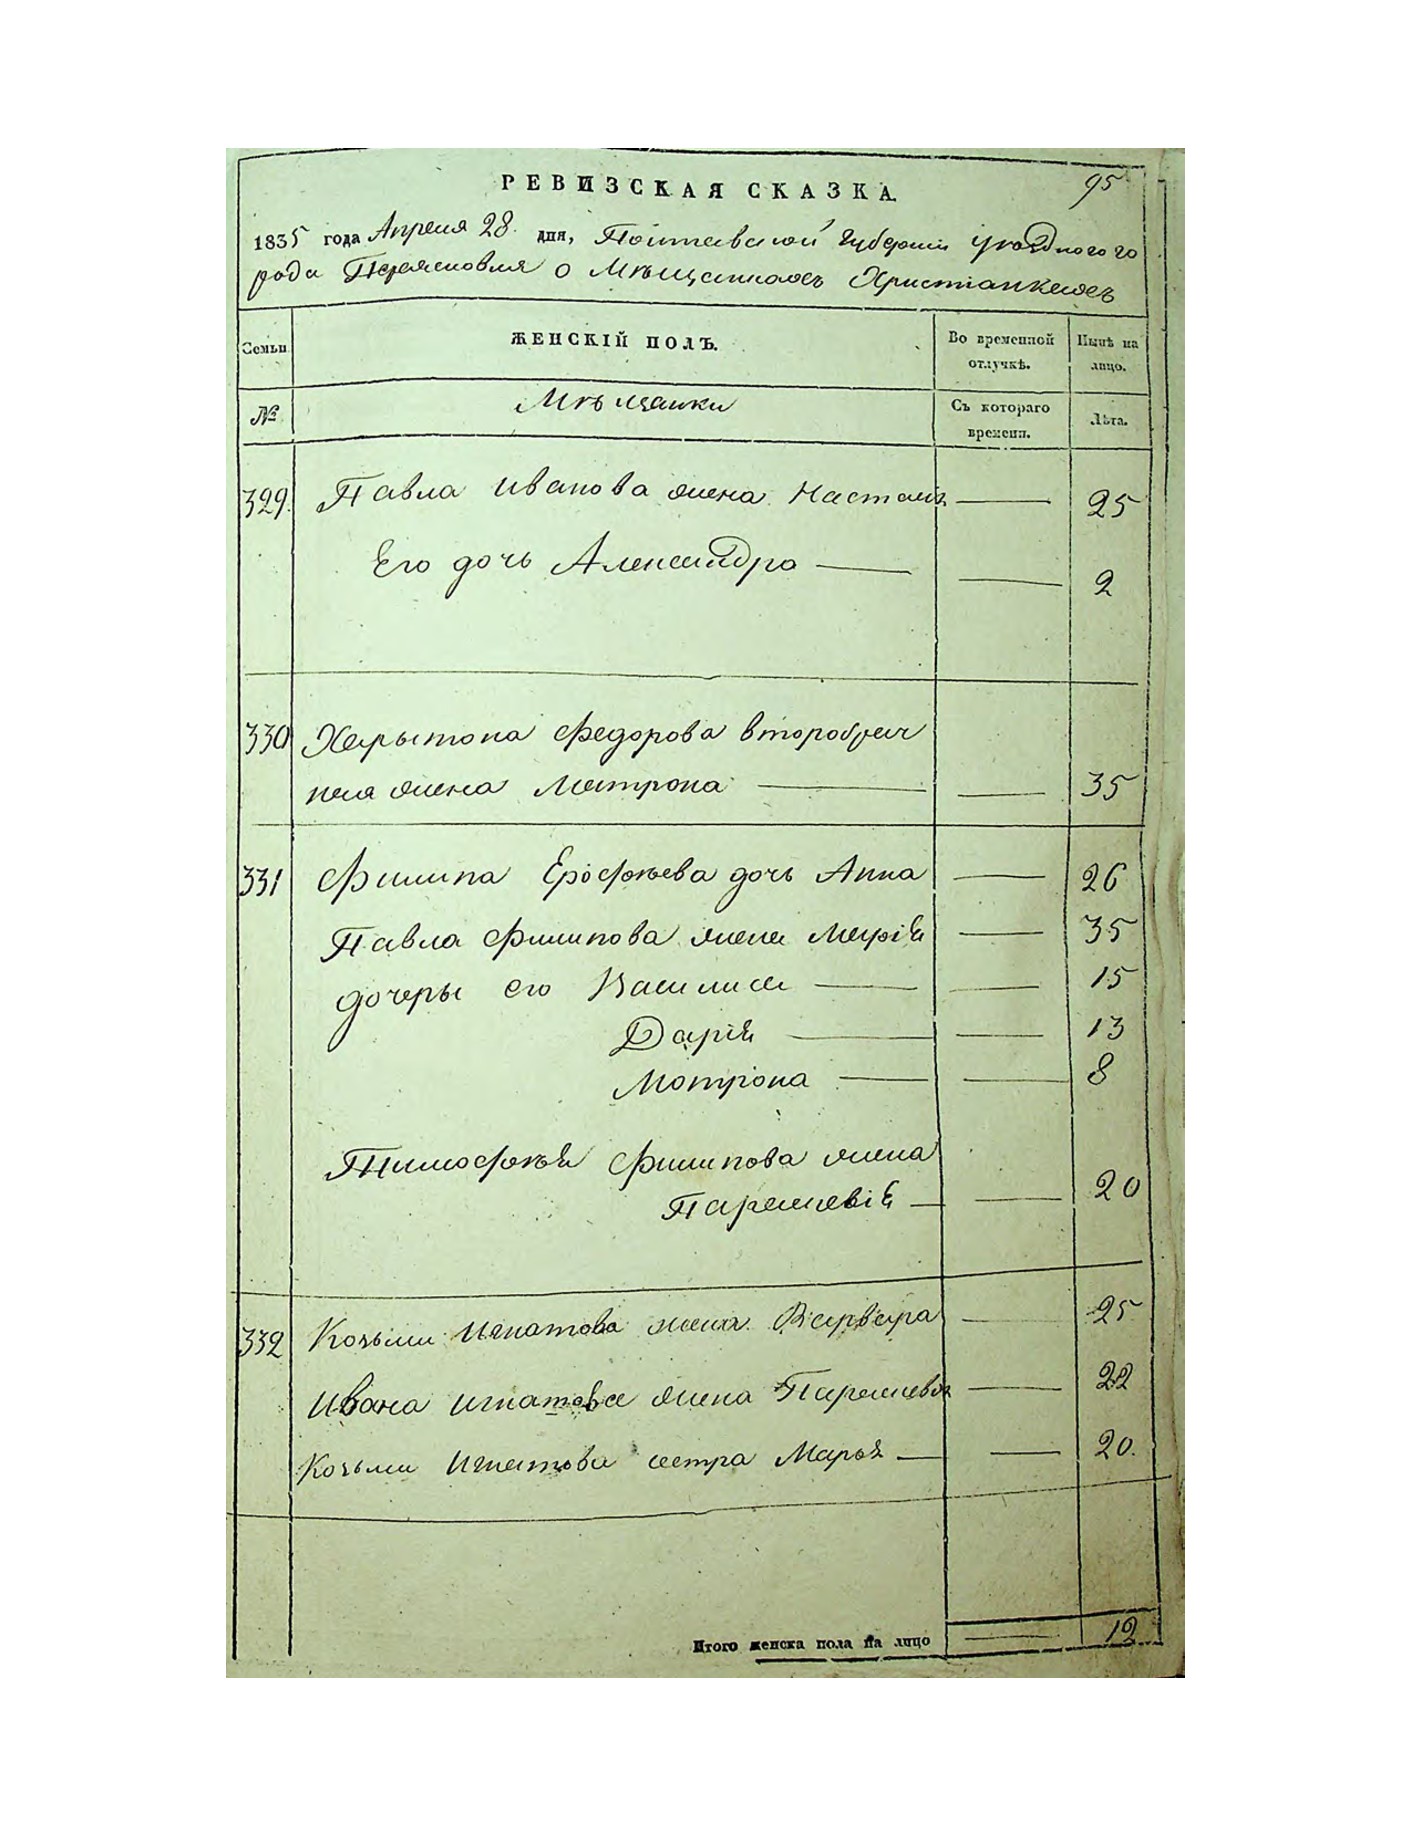 РЕВИЗСКАЯ СКАЗКА.
95
1835 года Апреля 28 дня, Полтавской Губернии уѣзднаго го
рода Переяславля о Мѣщанкахъ Христіанкахъ
Семьи
ЖЕНСКІЙ ПОЛЪ.
Во временной отлучкѣ.
Нынѣ на лицо.
№
Мѣщанки
Съ котораго времени.
Лѣта.
329. Павла Иванова жена Настасья — 25
Его дочь Александра — — 2
330 Харытона Федорова второбрач
ная жена Матрона — — 35
331 Филипа Ерофѣева дочь Анна — 26
Павла Филипова жена Марія — 35
дочеры его Василиса — — 15
Дарія — — 13
Мотрона — — 8
Тимофѣя Филипова жена
Парасковія — — 20
332 Козьми Игнатова жена Варвара — 25
Ивана Игнатова жена Парасковья — 22
Козьми Игнатова сестра Марья — — 20.
Итого женска пола на лицо — 12